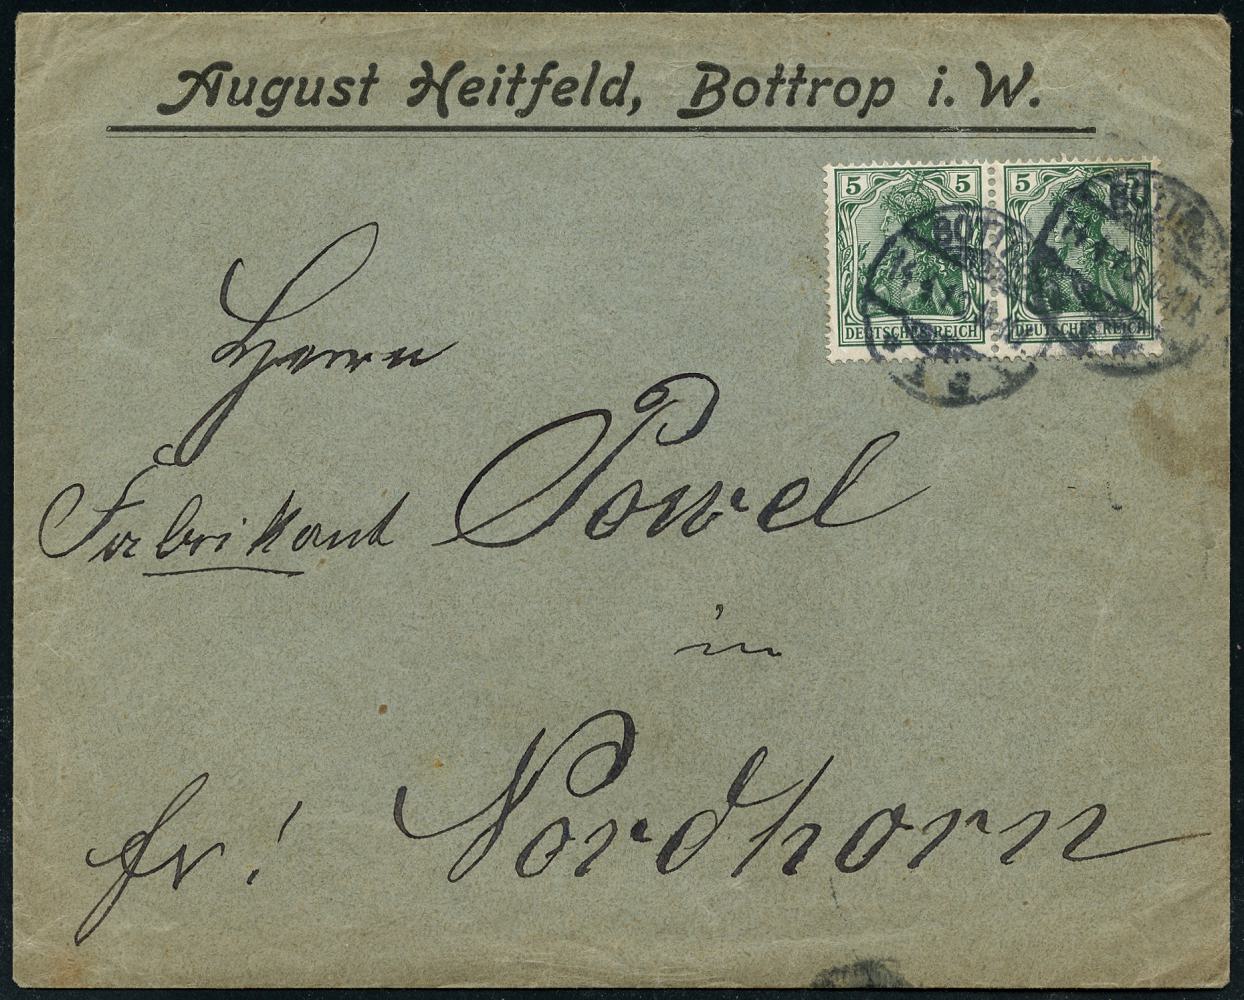 August Heitfeld, Bottrop i. W.
5 5 5 5
DEUTSCHES REICH DEUTSCHES REICH
Herrn
Fabrikant Powel
in
fr! Nordhorn